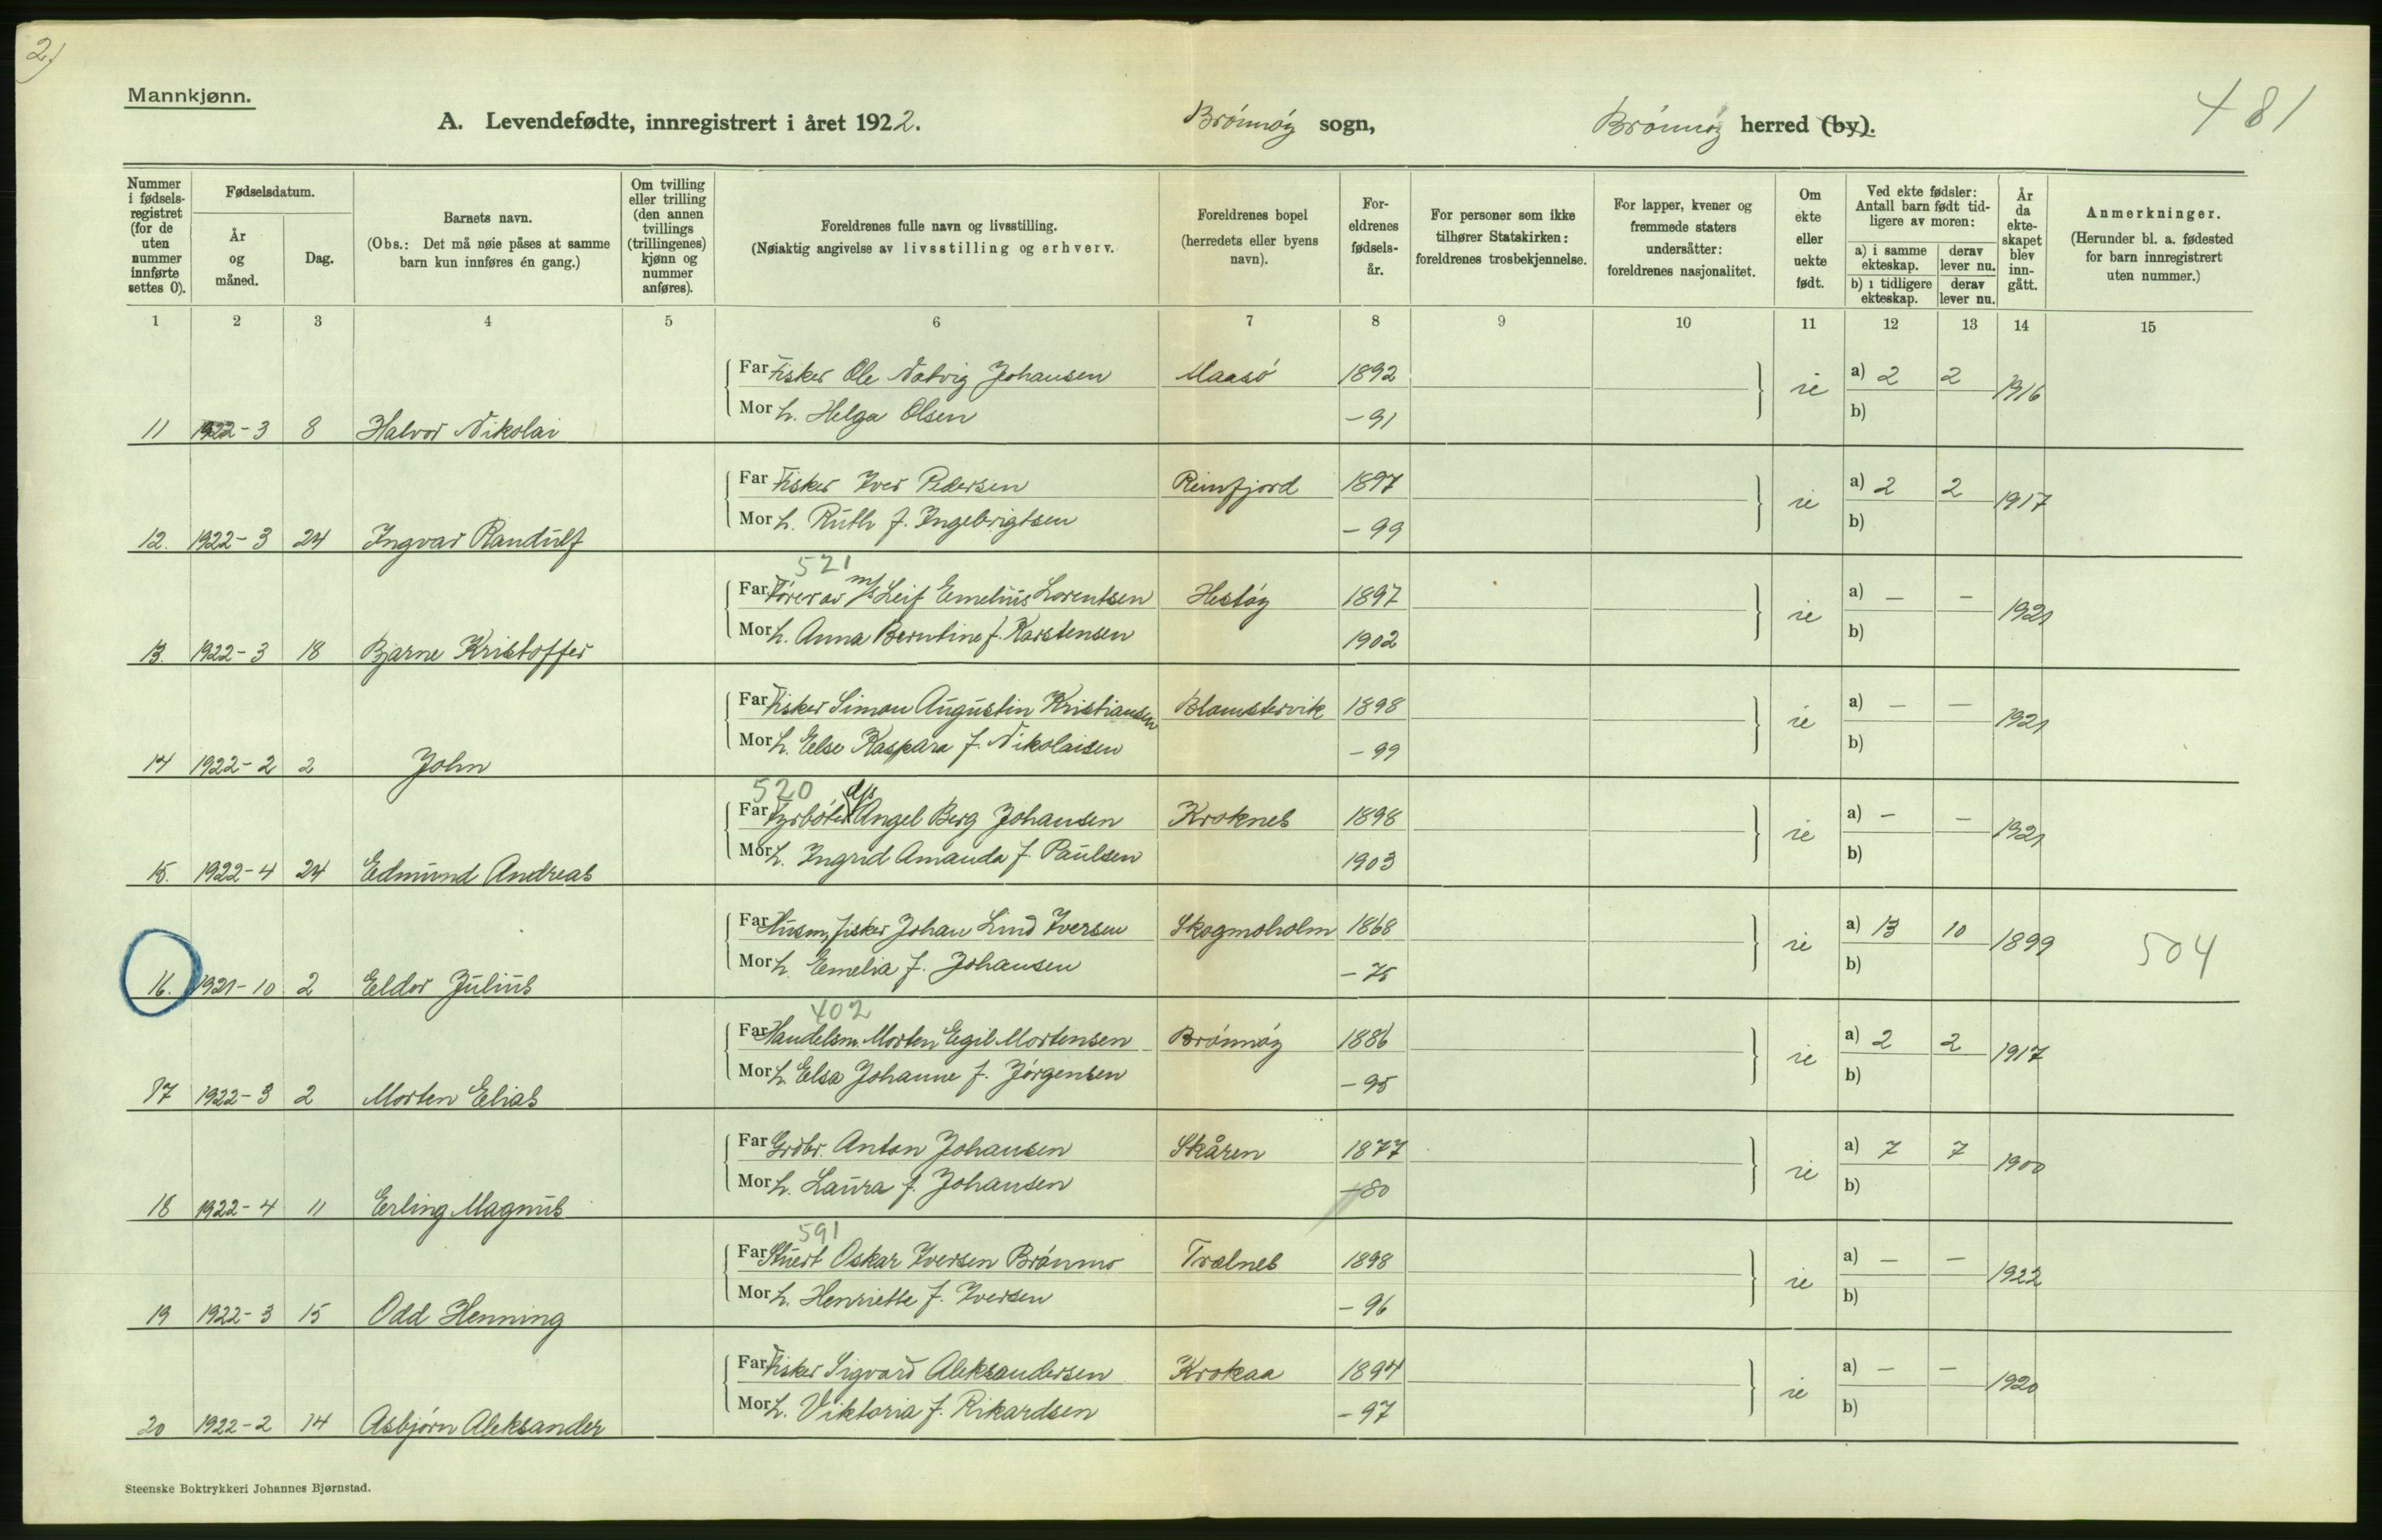 2)
Mannkjønn.
A. Levendefødte, innregistrert i året 1922. Brønnøy sogn, Brønnøy herred (by). 481
Nummer i fødsels-registret (for de uten nummer innførte settes 0).
Fødselsdatum.
År og måned.
Dag.
Barnets navn.
(Obs.: Det må nøie påses at samme barn kun innføres én gang.)
Om tvilling eller trilling (den annen tvillings (trillingenes) kjønn og nummer anføres).
Foreldrenes fulle navn og livsstilling.
(Nøiaktig angivelse av livsstilling og erhverv.
Foreldrenes bopel (herredets eller byens navn).
For-eldrenes fødsels-år.
For personer som ikke tilhører Statskirken: foreldrenes trosbekjennelse.
For lapper, kvener og fremmede staters undersåtter: foreldrenes nasjonalitet.
Om ekte eller uekte født.
Ved ekte fødsler: Antall barn født tid-ligere av moren:
a) i samme ekteskap.
derav lever nu.
b) i tidligere ekteskap.
derav lever nu.
År da ekte-skapet blev inn-gått.
Anmerkninger.
(Herunder bl. a. fødested for barn innregistrert uten nummer.)
1 2 3 4 5 6 7 8 9 10 11 12 13 14 15
Far Fisker Ole Natvig Johansen Maasø 1892 a) 2 2
ie 1916
Mor h. Helga Olsen - 91 b)
11 1922-3 8 Halvor Nikolai
Far Fisker Iver Pedersen Reinfjord 1897 a) 2 2
ie 1917
Mor h. Ruth f. Ingebrigtsen - 99 b)
12. 1922-3 24 Ingvar Randulf
521
Far Fører av m/s Leif Emelius Lorentsen Hestøy 1897 a) — —
ie 1921
Mor h. Anna Berntine f. Karstensen 1902 b)
13. 1922-3 18 Bjarne Kristoffer
Far Fisker Simon Augustin Kristiansen Blomstervik 1898 a) — —
ie 1921
Mor h. Else Kaspara f. Nikolaisen - 99 b)
14 1922-2 2 John
520
Far Fyrbøter d/s Angel Berg Johansen Kroknes 1898 a) — —
ie 1921
Mor h. Ingrid Amanda f. Paulsen 1903 b)
15. 1922-4 24 Edmund Andreas
Far Husm, fisker Johan Lind Iversen Skogmoholm 1868 a) 13 10
ie 1899 504
Mor h. Emelia f. Johansen - 75 b)
16. 1921-10 2 Eldor Julius
402
Far Handelsm. Morten Egil Mortensen Brønnøy 1886 a) 2 2
ie 1917
Mor h. Elsa Johanne f. Jørgensen - 95 b)
17 1922-3 2 Morten Elias
Far Grdbr. Anton Johansen Skåren 1877 a) 7 7
ie 1900
Mor h. Laura f. Johansen - 80 b)
18 1922-4 11 Erling Magnus
591
Far Stuert Oskar Iversen Brønmo Trælnes 1898 a) — —
ie 1922
Mor h. Henriette f. Iversen - 96 b)
19 1922-3 15 Odd Henning
Far Fisker Sigvard Aleksandersen Krokaa 1894 a) — —
ie 1920
Mor h. Viktoria f. Rikardsen - 97 b)
20 1922-2 14 Asbjørn Aleksander
Steenske Boktrykkeri Johannes Bjørnstad.